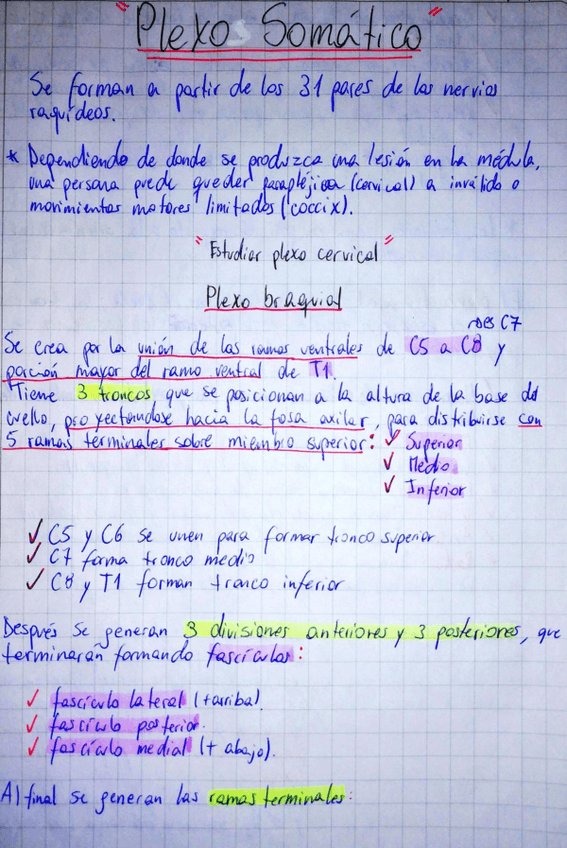 "Plexo Somático"
Se forman a partir de los 31 pares de los nervios
raquídeos.
* Dependiendo de donde se produzca una lesión en la médula,
una persona puede quedar parapléjica (cervical) a inválido o
movimientos motores limitados (coccix).
"Estudiar plexo cervical"
Plexo braquial
C7
Se crea por la unión de las ramas ventrales de C5 a C8 y
porción mayor del ramo ventral de T1.
Tiene 3 troncos que se posicionan a la altura de la base del
cuello, proyectandose hacia la fosa axilar, para distribuirse con
5 ramas terminales sobre miembro superior: ✓ Superior
✓ Medio
✓ Inferior
✓ C5 y C6 se unen para formar tronco superior
✓ C7 forma tronco medio
✓ C8 y T1 forman tronco inferior
Después se generan 3 divisiones anteriores y 3 posteriores, que
terminarán formando fascículos:
✓ fascículo lateral (+arriba).
✓ fascículo posterior.
✓ fascículo medial (+ abajo).
Al final se generan las ramas terminales: